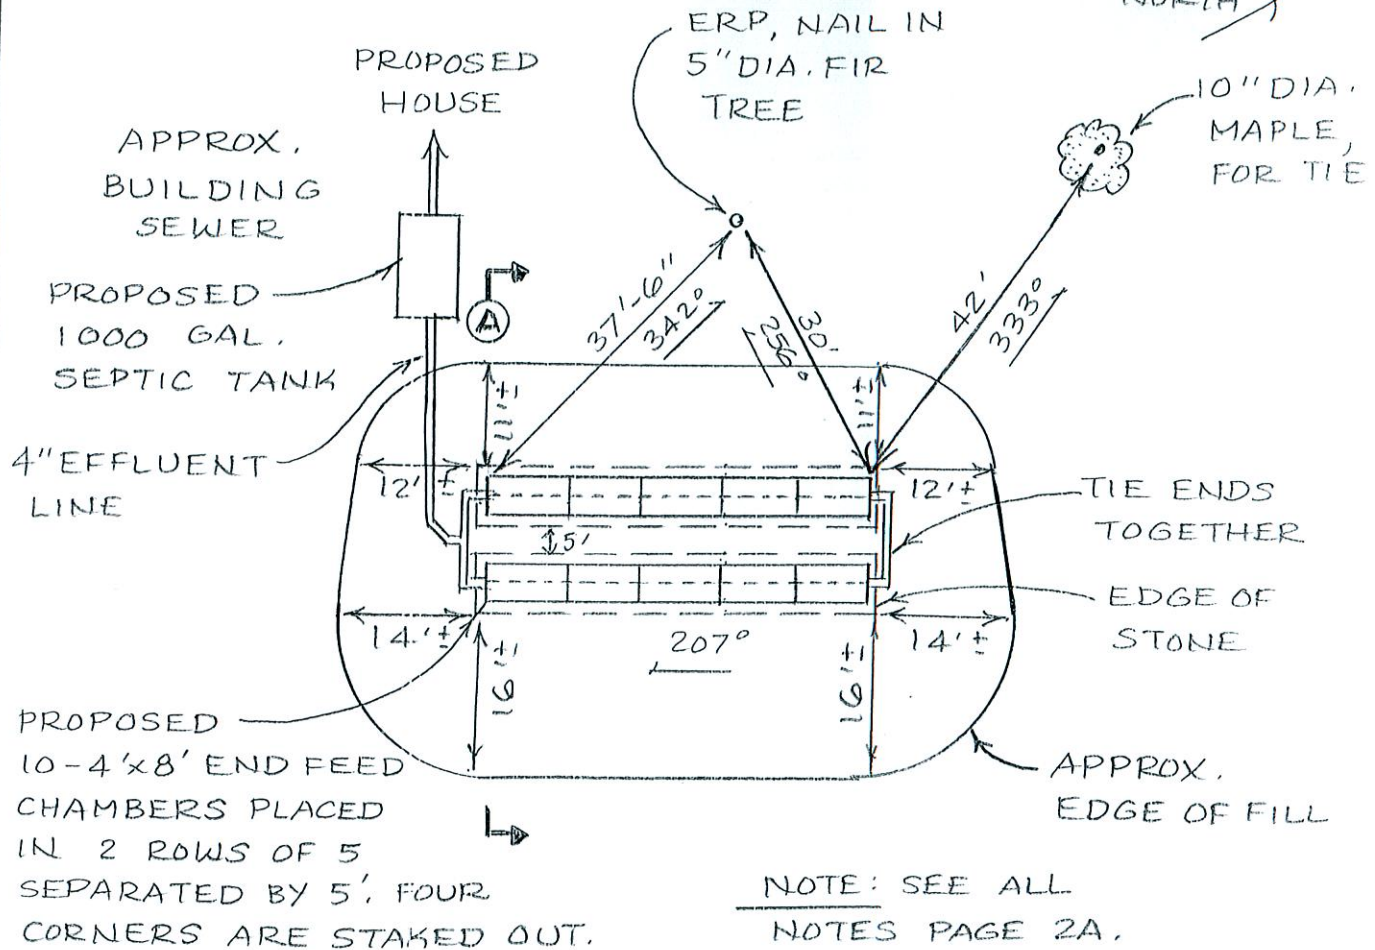 NORTH
ERP, NAIL IN
5" DIA. FIR
TREE
PROPOSED
HOUSE
10" DIA.
MAPLE,
FOR TIE
APPROX.
BUILDING
SEWER
PROPOSED
1000 GAL.
SEPTIC TANK
A
37'-6"
342°
30'
256°
42'
333°
11'±
11'±
4" EFFLUENT
LINE
12'±
12'±
TIE ENDS
TOGETHER
5'
EDGE OF
STONE
14'±
207°
14'±
16'±
16'±
PROPOSED
10-4'x8' END FEED
CHAMBERS PLACED
IN 2 ROWS OF 5
SEPARATED BY 5'. FOUR
CORNERS ARE STAKED OUT.
APPROX.
EDGE OF FILL
NOTE: SEE ALL
NOTES PAGE 2A.